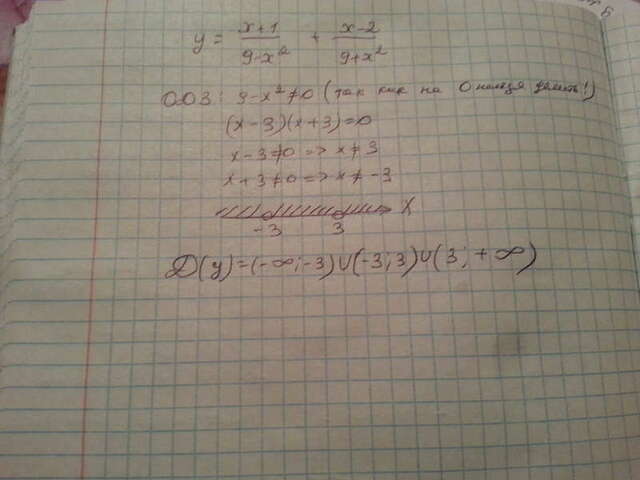 y = x+1/9-x² + x-2/9+x²
ОДЗ: 9-x²≠0 (так как на 0 нельзя делить!)
(x-3)(x+3)=0
x-3≠0 => x≠3
x+3≠0 => x≠-3
-3 3 X
D(y)=(-∞;-3)∪(-3;3)∪(3;+∞)